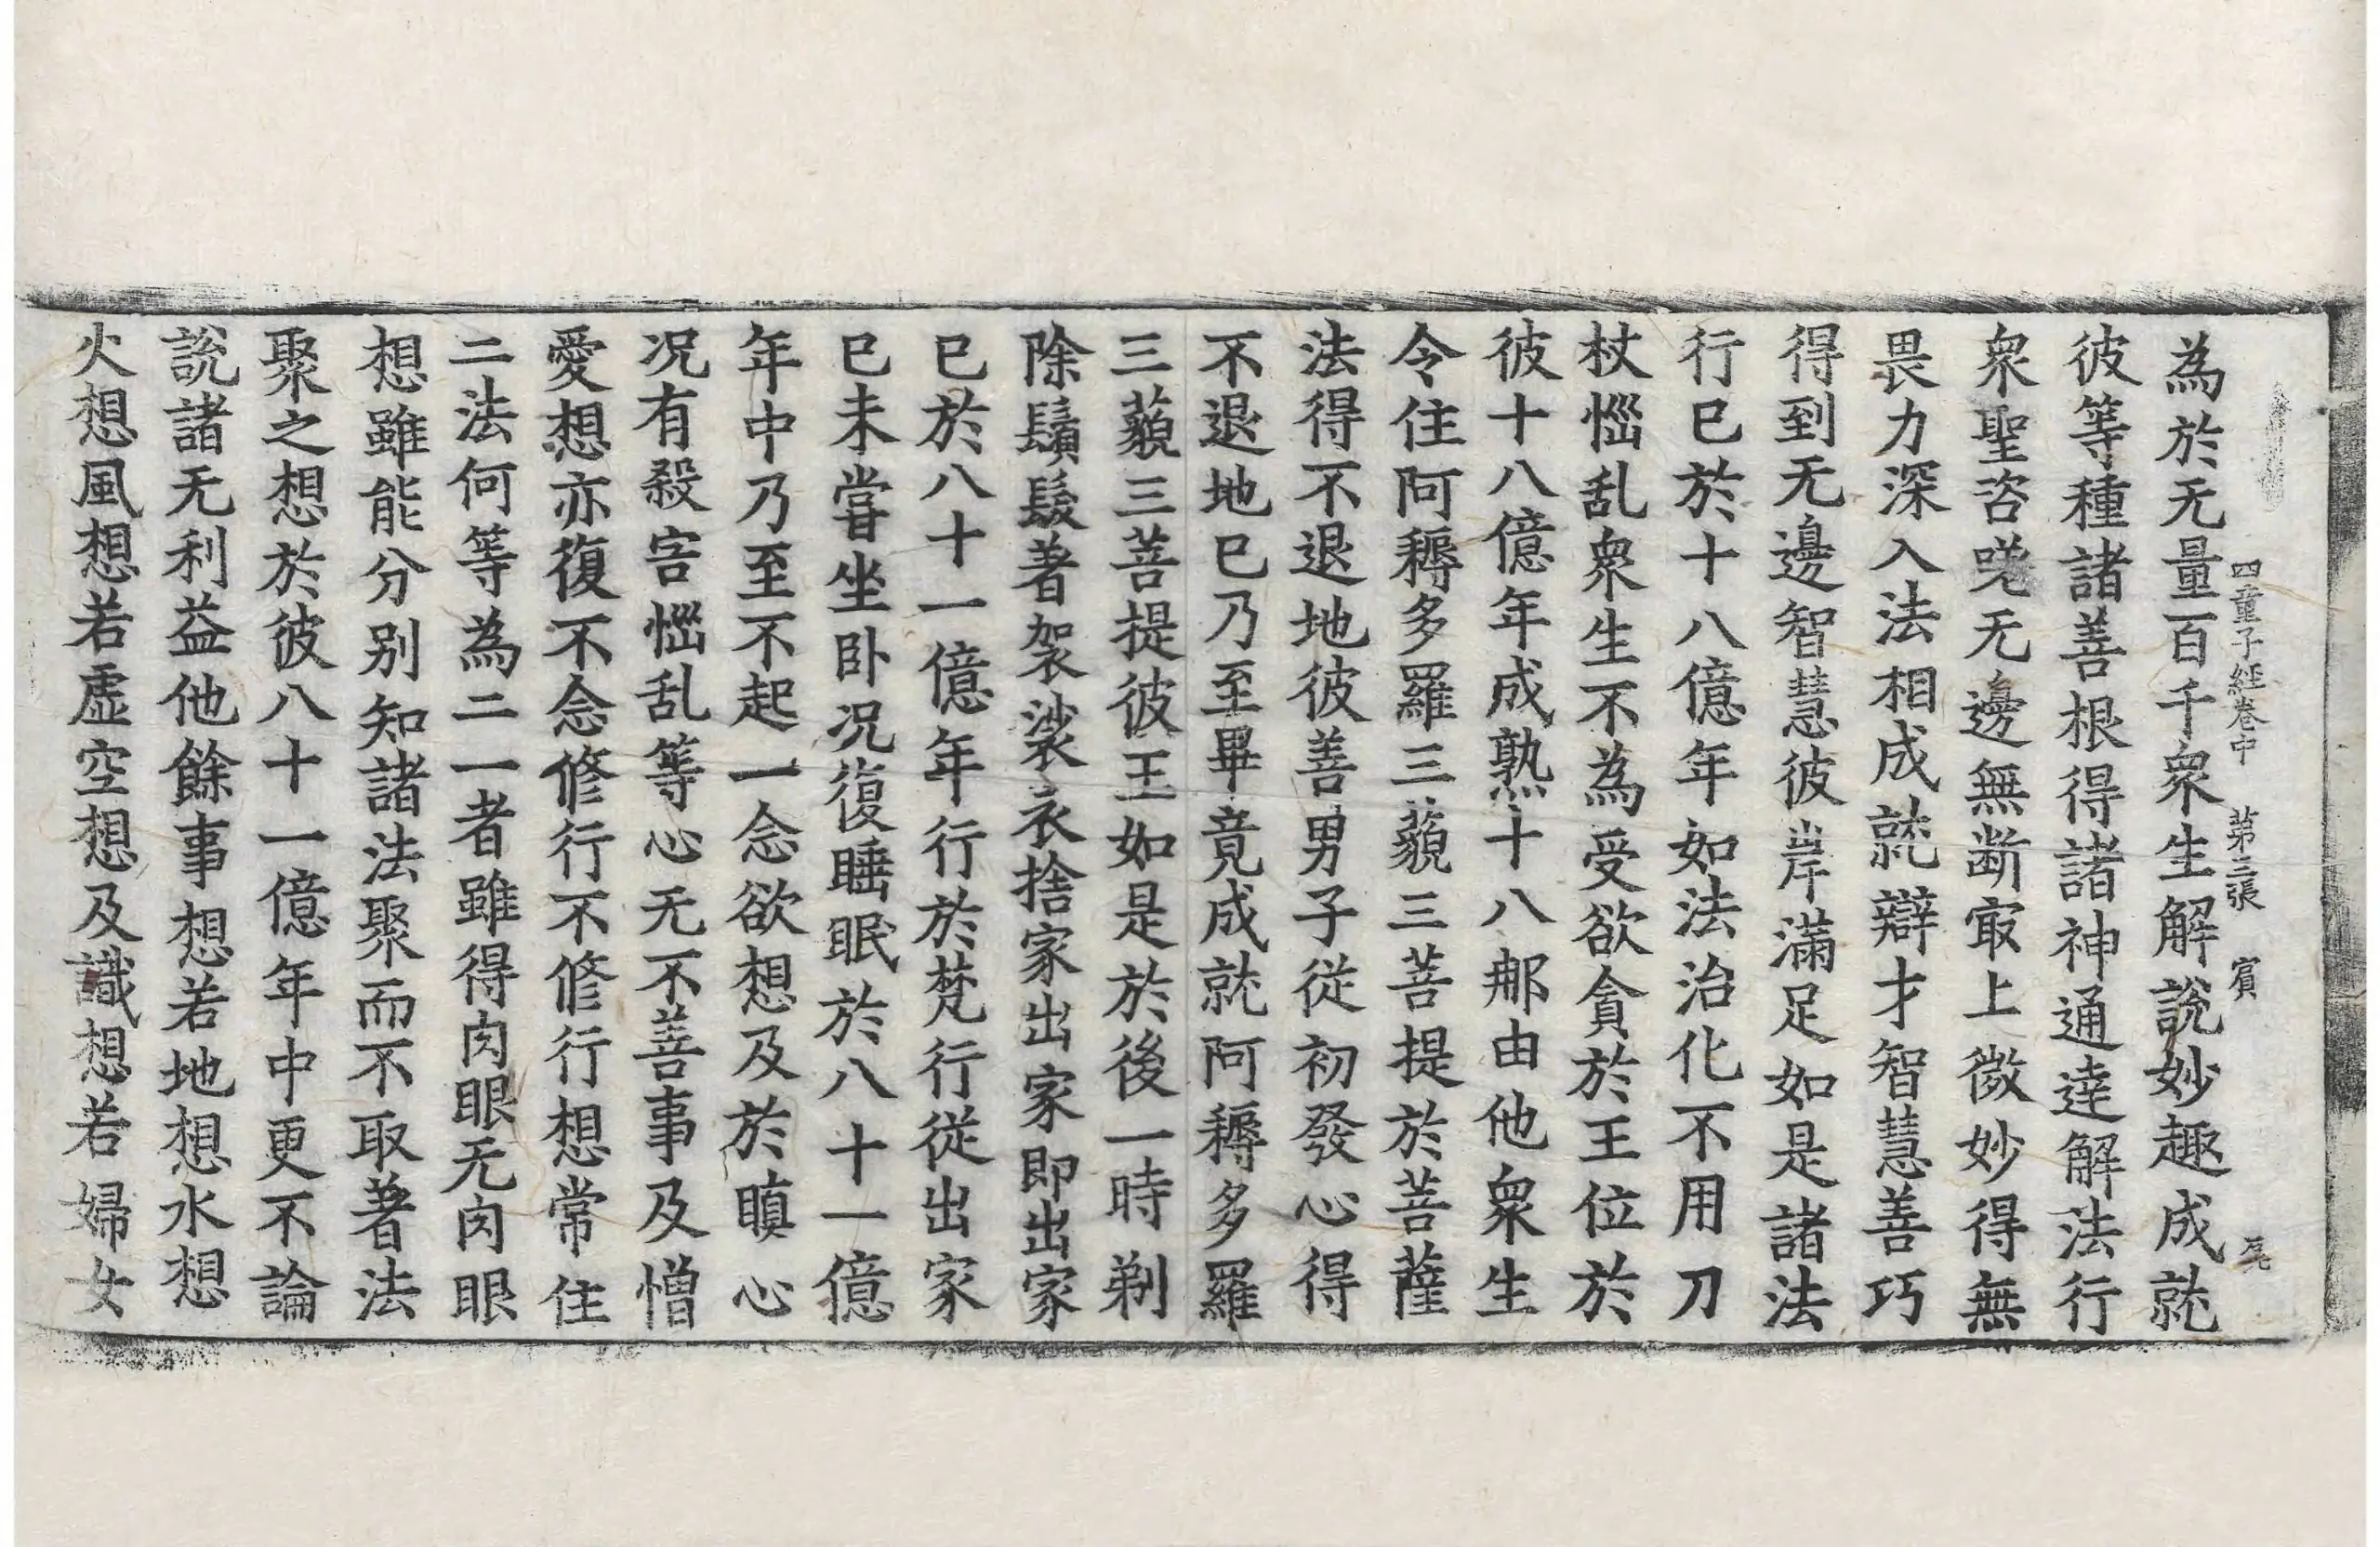 四童子經卷中　第三張　賓
為於无量百千衆生解說妙趣成就
彼等種諸善根得諸神通達解法行
衆聖咨嗟无邊無断㝡上微妙得無
畏力深入法相成就辯才智慧善巧
得到无邊智慧彼岸滿足如是諸法
行已於十八億年如法治化不用刀
杖惱乱衆生不為受欲貪於王位於
彼十八億年成熟十八那由他衆生
令住阿耨多羅三藐三菩提於菩薩
法得不退地彼善男子從初發心得
不退地已乃至畢竟成就阿耨多羅
三藐三菩提彼王如是於後一時剃
除鬚髮著袈裟衣捨家出家即出家
已於八十一億年行於梵行從出家
已未甞坐卧况復睡眠於八十一億
年中乃至不起一念欲想及於瞋心
况有殺害惱乱等心无不善事及憎
愛想亦復不念修行不修行想常住
二法何等為二一者雖得肉眼无肉眼
想雖能分别知諸法聚而不取著法
聚之想於彼八十一億年中更不論
說諸无利益他餘事想若地想水想
火想風想若虛空想及識想若婦女